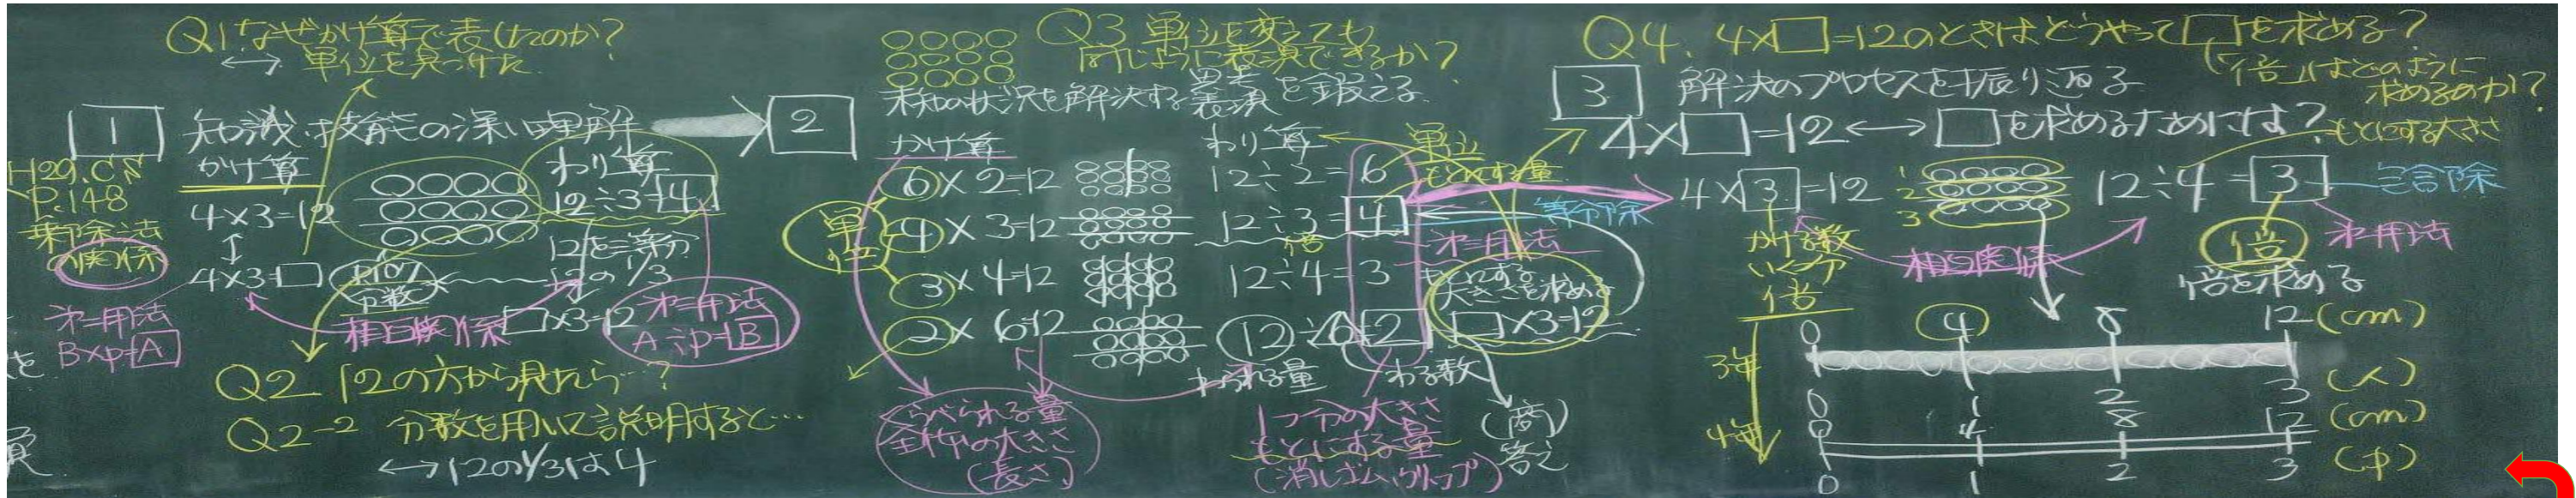 Q1 なぜかけ算で表したのか?
↔ 単位を見つけた
1 知識・技能の深い理解
H29.CS
P.148
乗除法
の関係
かけ算
4×3=12
4×3=□
第二用法
B×p=A
わり算
12÷3=4
12を三等分
12の1/3
P107
分数
相互関係
□×3=12
第三用法
A÷p=B
Q2 12の方から見たら…?
Q2-2 分数を用いて説明すると…
↔12の1/3は4
Q3 単位を変えても
同じように表現できるか?
2 未知の状況を解決する思考表現を鍛える
かけ算
わり算
単位
6×2=12
12÷2=6
4×3=12
12÷3=4
3×4=12
12÷4=3
2×6=12
12÷6=2
単位
もとにする量
等分除
倍
第三用法
もとにする
大きさを求める
□×3=12
わられる量
わる数
くらべられる量
全体の大きさ
(長さ)
1つ分の大きさ
もとにする量
(消しゴム,クリップ)
(商)
答え
Q4. 4×□=12のときはどうやって□を求める?
(「倍」はどのように
求めるのか?
3 解決のプロセスを振り返る
4×□=12↔□を求めるためには?
もとにする大きさ
4×3=12
1
2
3
12÷4=3
包含除
かける数
いくつ分
倍
相互関係
倍
第一用法
倍を求める
0 4 8 12(cm)
3年
0 1 2 3 (人)
0 4 8 12 (cm)
4年
0 1 2 3 (p)